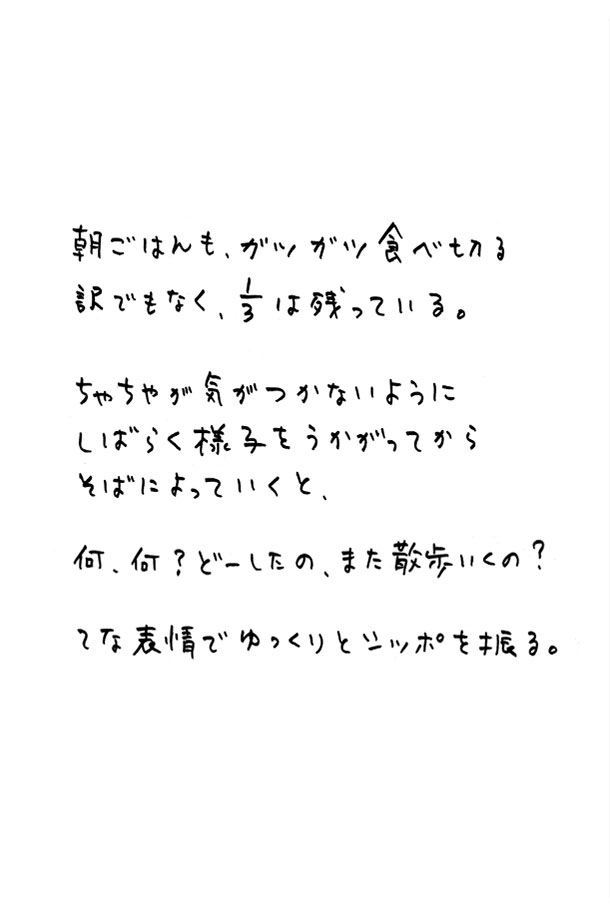 朝ごはんも、ガツガツ食べ切る
訳でもなく、1/3は残っている。
ちゃちゃが気がつかないように
しばらく様子をうかがってから
そばによっていくと、
何、何？どーしたの、また散歩いくの？
てな表情でゆっくりとシッポを振る。